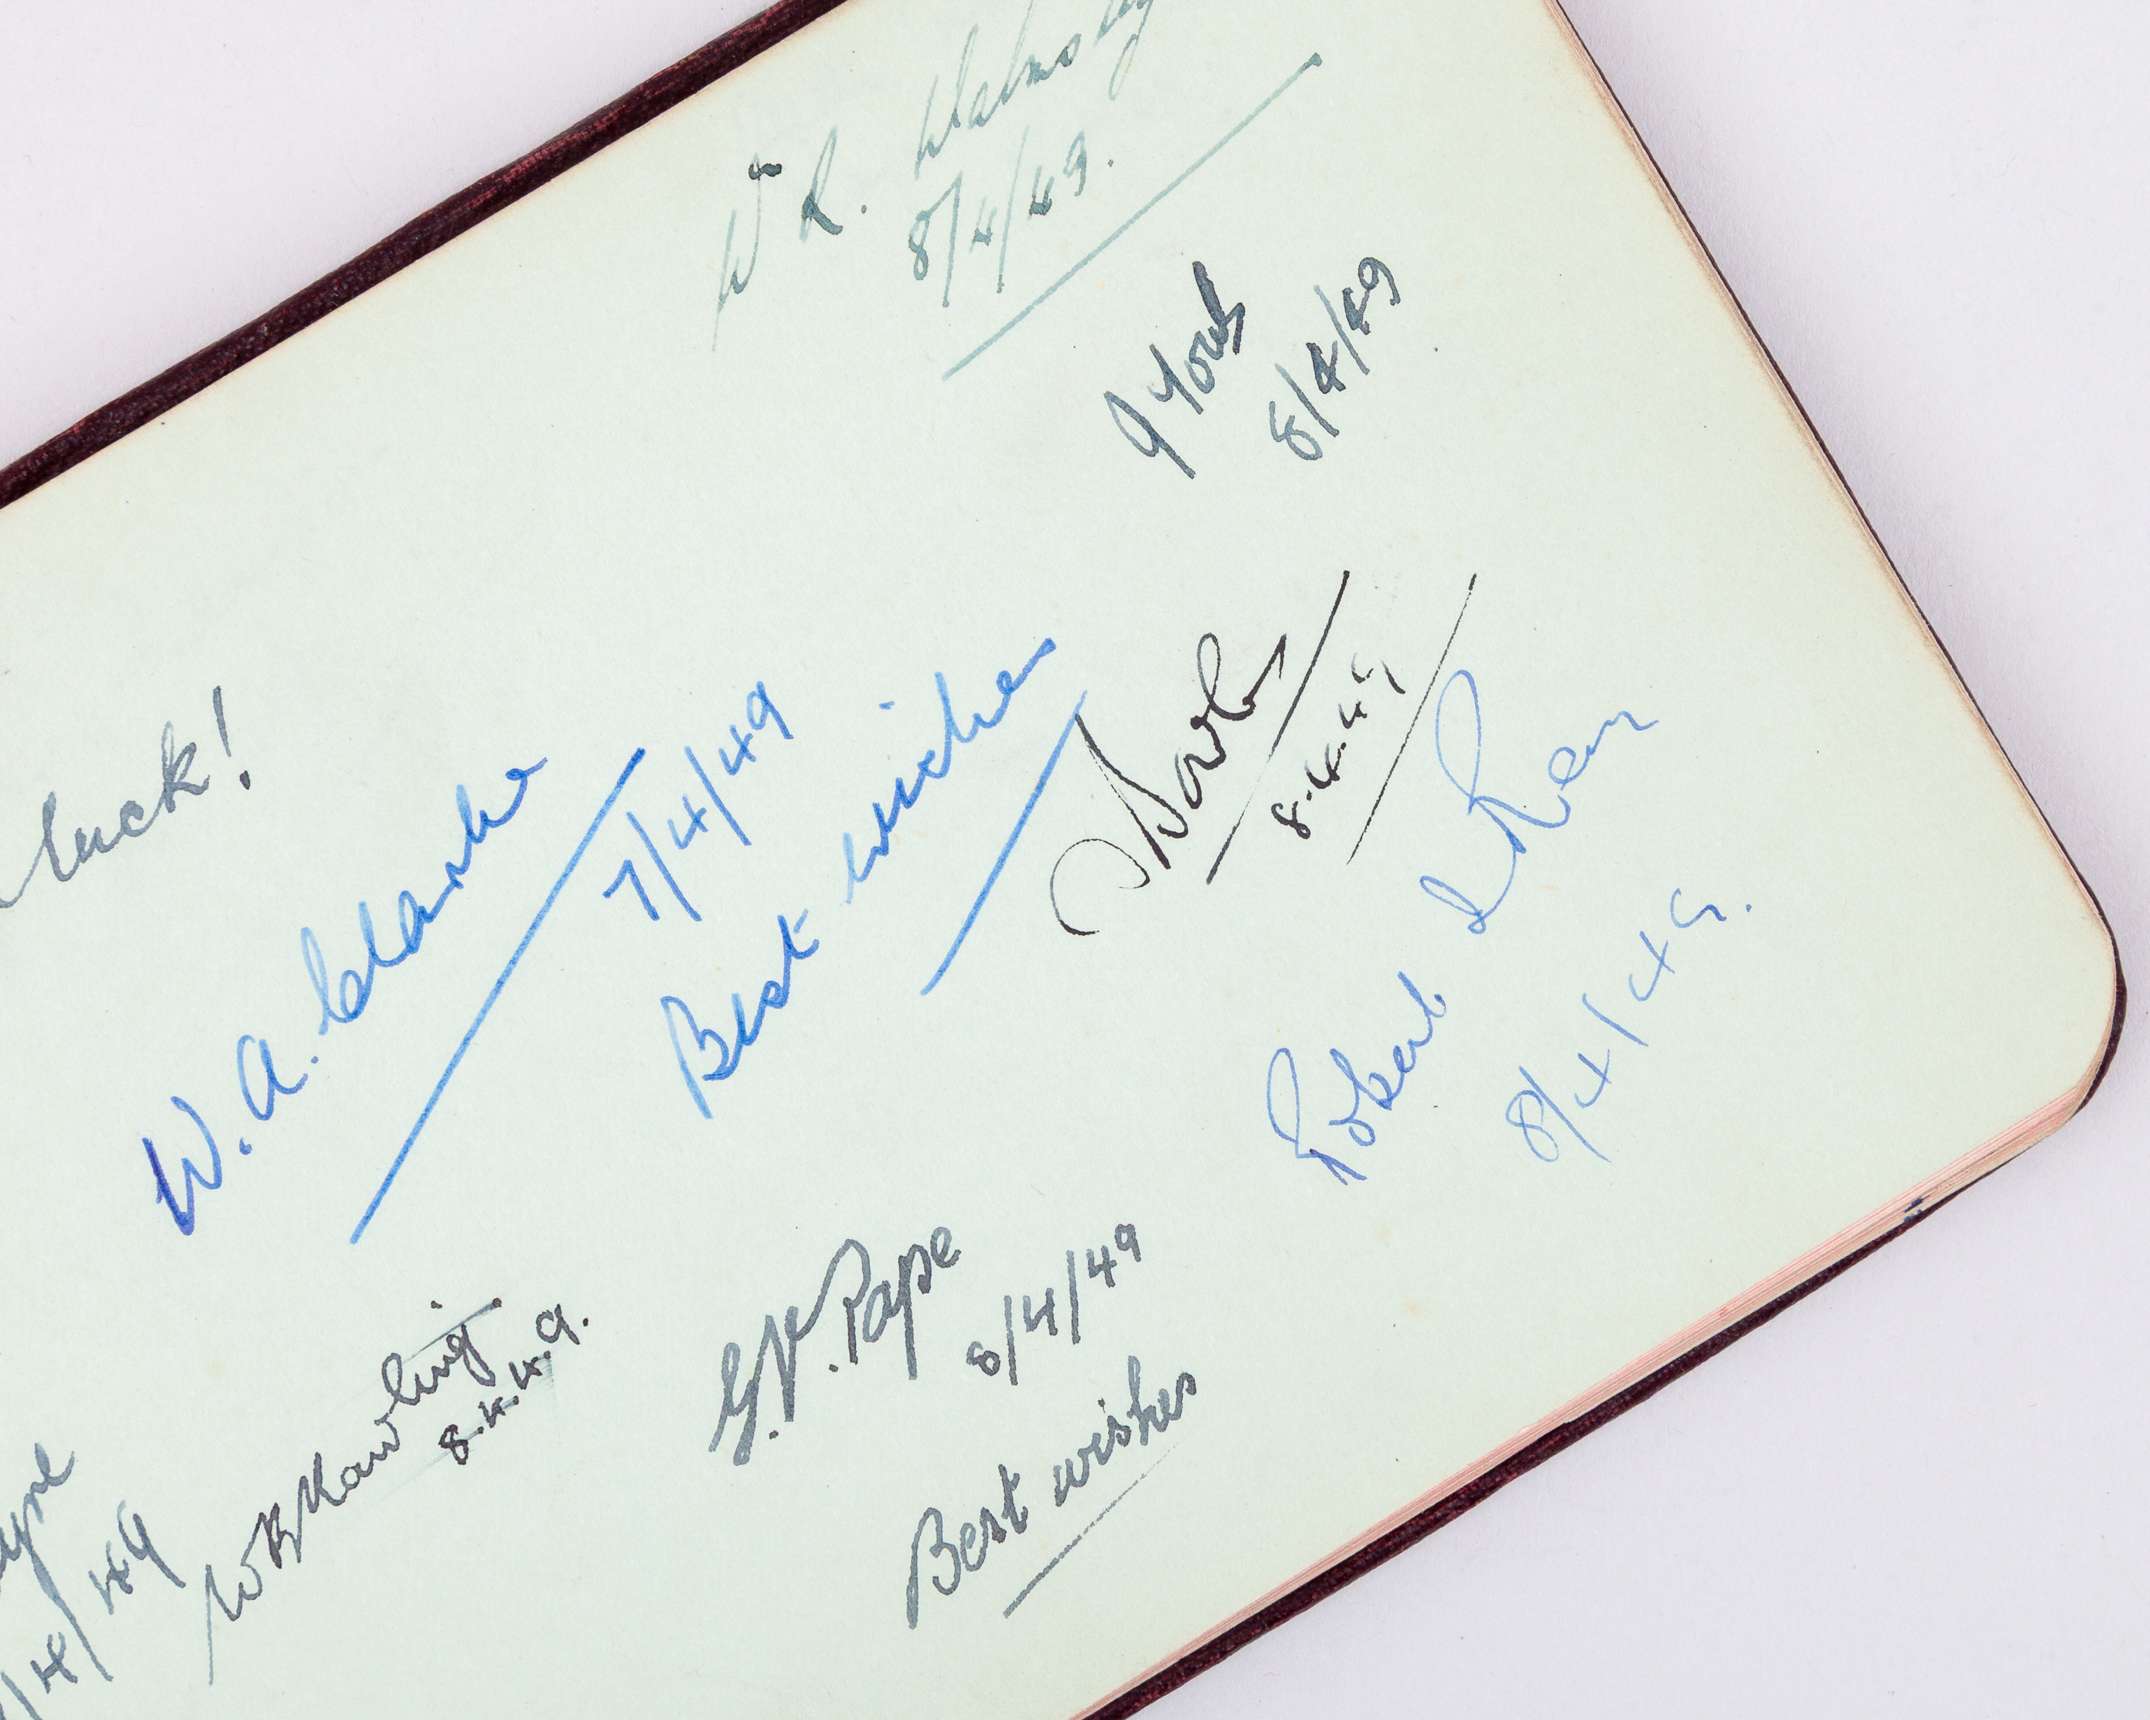 W R. Walmsley
8/4/49.
8/4/49
luck!
W. A. Clarke
7/4/49
Best wishes
8.4.49
Robert
8/4/49.
G.V. Pape
8/4/49
Best wishes
WB Rawling
8.4.49.
/4/49